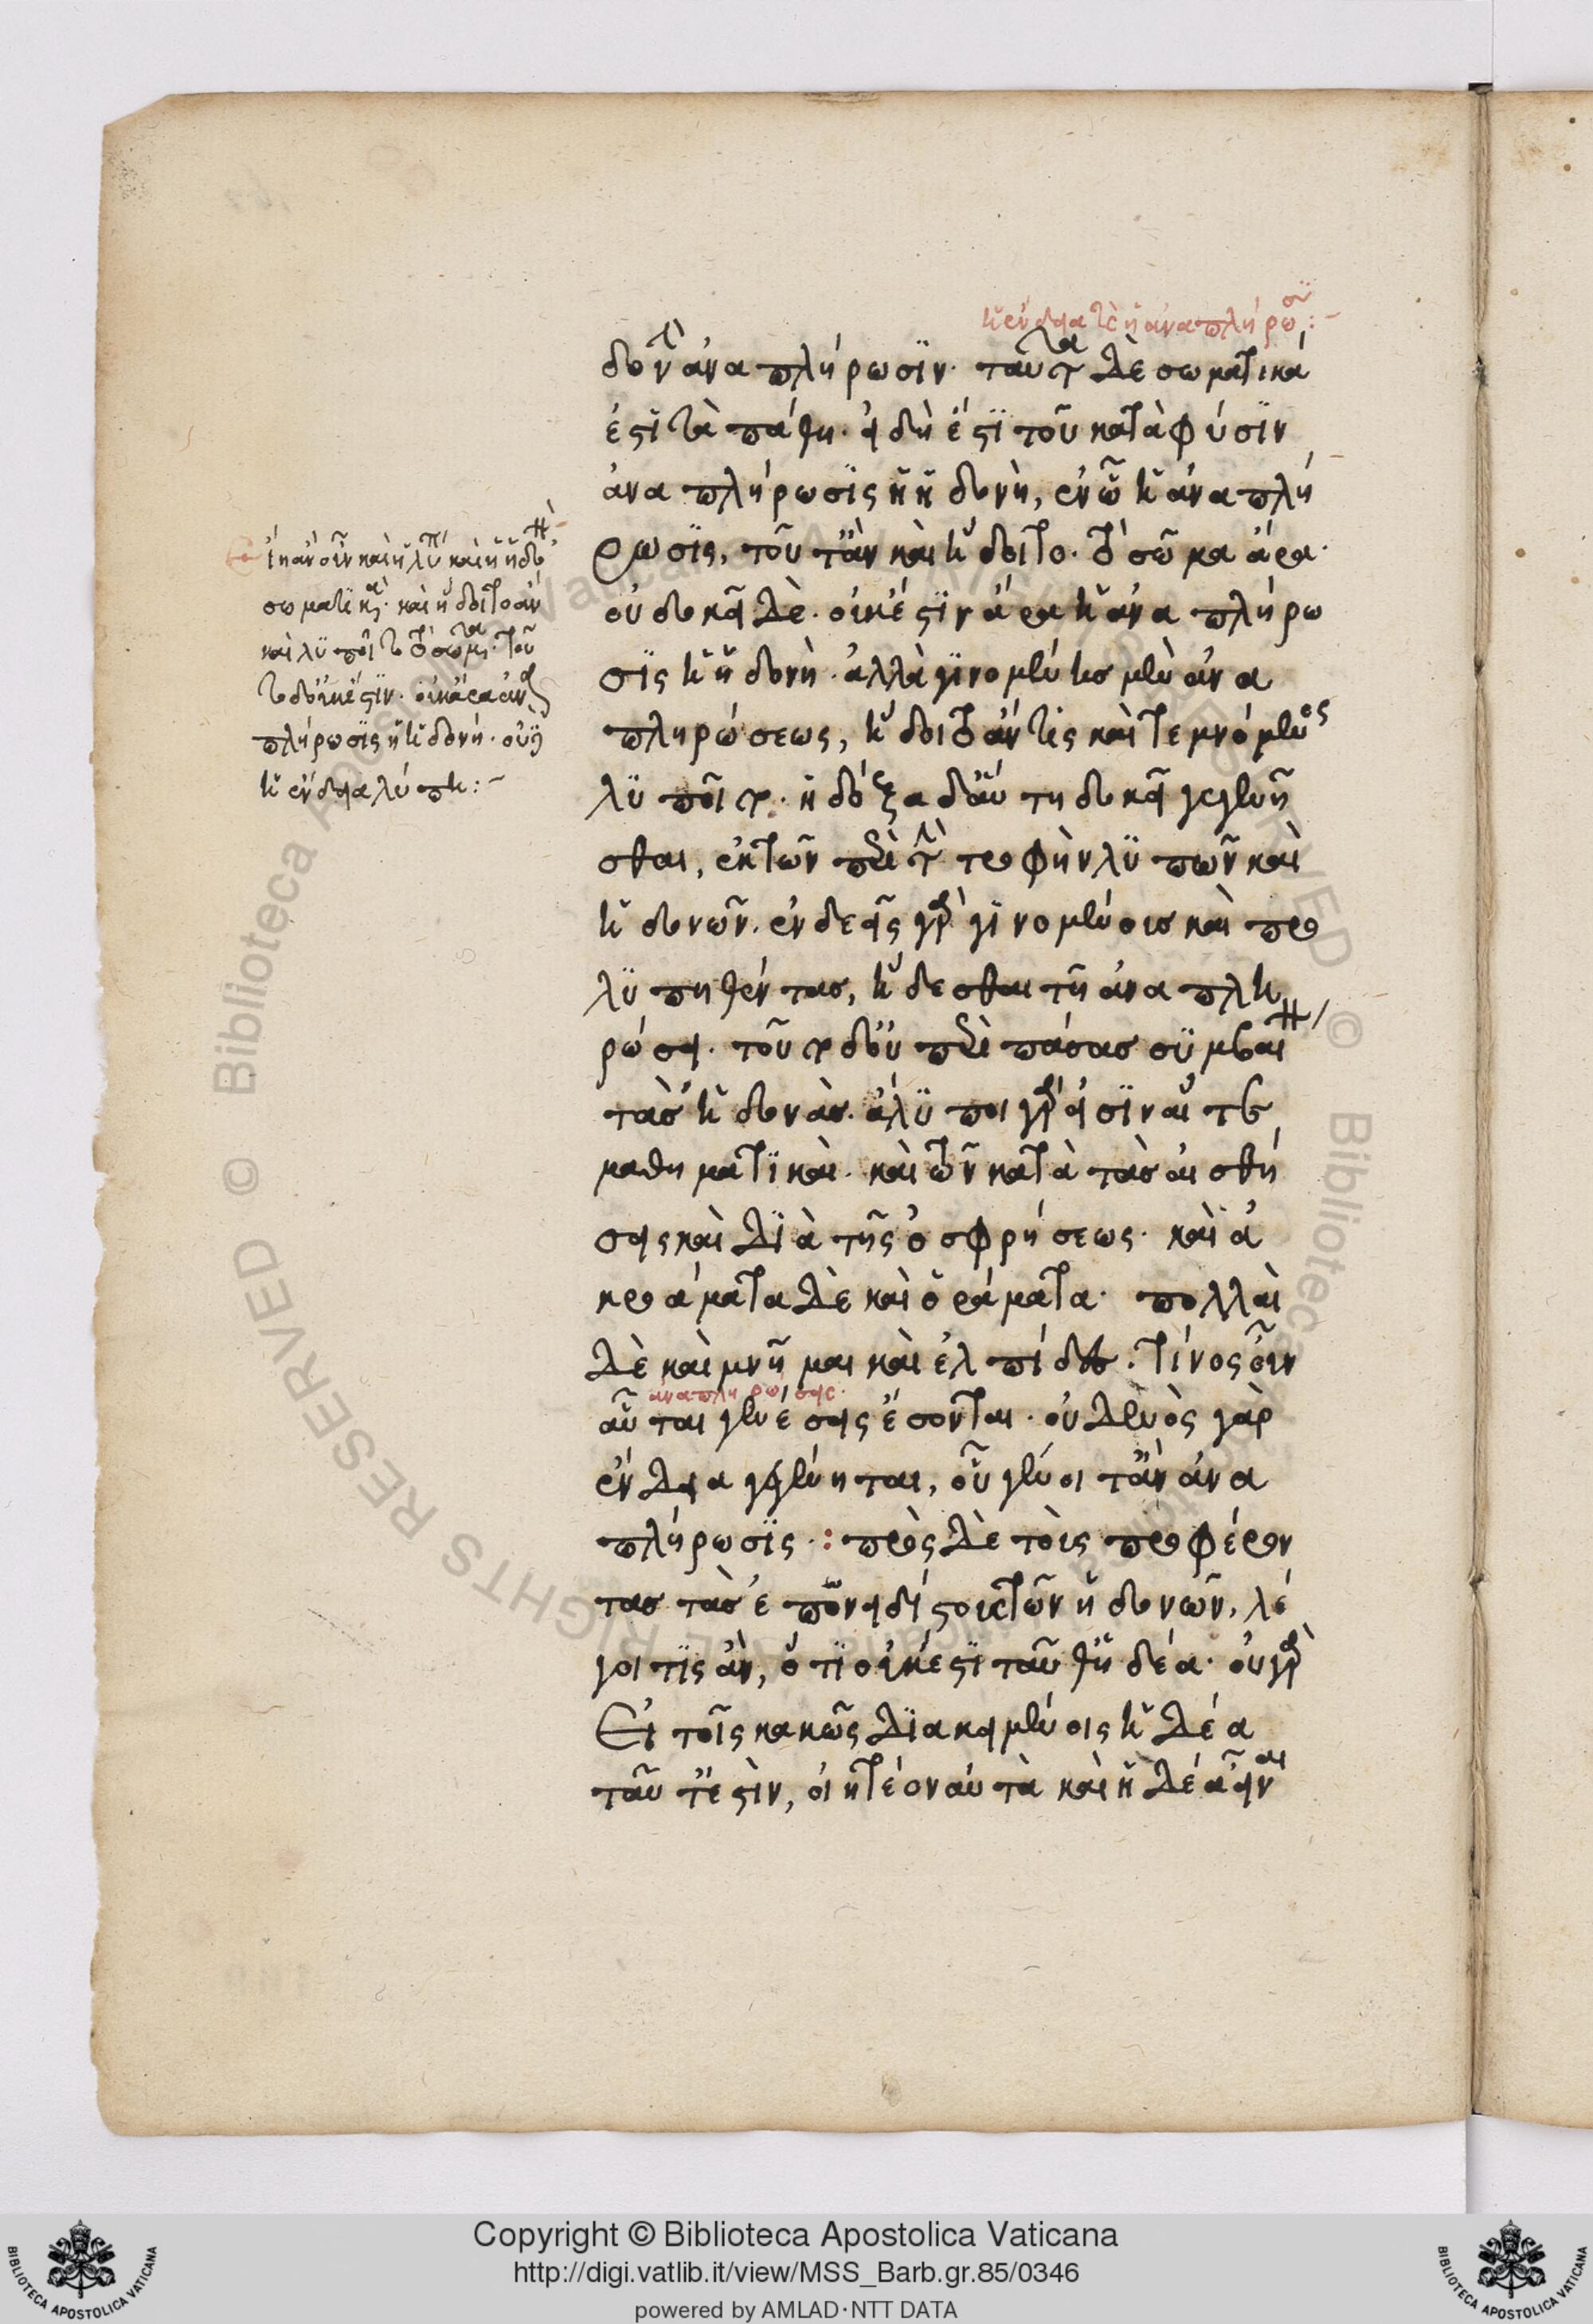 ἡ ἔνδεια τὲ ἡ ἀναπλήρωσις:-
δονὴν ἀναπλήρωσιν. ταῦτα δὲ σωματικά
ἐστι τὰ πάθη. εἰ δή ἐστι τοῦ κατὰ φύσιν
ἀναπλήρωσις ἡ ἡδονὴ, ἐν ᾧ ἡ ἀναπλή
ρωσις, τοῦτ' ἂν καὶ ἥδοιτο. τὸ σῶμα ἄρα.
οὐ δοκεῖ δέ. οὐκ ἔστιν ἄρα ἡ ἀναπλήρω
σις ἡ ἡδονὴ. ἀλλὰ γινομένησ μὲν ἀνα
πληρώσεως, ἥδοιτ' ἄν τις καὶ τεμνόμενος
λυποῖτο. ἡ δόξα δ' αὕτη δοκεῖ γεγενῆ
σθαι, ἐκ τῶν περὶ τὴν τροφὴν λυπῶν καὶ
ἡδονῶν. ἐνδεεῖς γὰρ γινομένουσ καὶ προ
λυπηθέντασ, ἥδεσθαι τῇ ἀναπλη
ρώσει. τοῦτο δ' οὐ περὶ πάσασ συμβαίνει
τὰσ ἡδονὰσ. ἄλυποι γάρ εἰσιν αἵ τε
μαθηματικαὶ. καὶ τῶν κατὰ τὰσ αἰσθή
σεις καὶ διὰ τῆς ὀσφρήσεως. καὶ ἀ
κροάματα δὲ καὶ ὁράματα. πολλαὶ
δὲ καὶ μνῆμαι καὶ ἐλπίδες. τίνος οὖν
ἀναπληρώσεις.
αὗται γενέσεις ἔσονται. οὐδενὸς γὰρ
ἔνδεια γεγένηται, οὗ γένοιτ' ἂν ἀνα
πλήρωσις.: πρὸς δὲ τοὺς προφέρον
τασ τὰσ ἐπονειδίστους τῶν ἡδονῶν, λέ
γοι τις ἂν, ὅτι οὐκ ἔστι ταῦθ' ἡδέα. οὐ γὰρ
Εἰ τοῖς κακῶς διακειμένοις ἡδέα
ταῦτ' ἐστὶν, οἰητέον αὐτὰ καὶ ἡδέα εἶναι
ἦν ἂν οὖν καὶ ἡ λύπη καὶ ἡ ἡδονὴ
σωματική. καὶ ἥδοιτο ἂν
καὶ λυποῖτο τὸ σῶμα. τοῦ
το δ' οὐκ ἔστιν. οὐκ ἄρα ἀνα
πλήρωσις ἡ ἡδονή. οὐδ'
ἡ ἔνδεια λύπη:-
Copyright © Biblioteca Apostolica Vaticana
http://digi.vatlib.it/view/MSS_Barb.gr.85/0346
powered by AMLAD·NTT DATA
BIBLIOTECA APOSTOLICA VATICANA
BIBLIOTECA APOSTOLICA VATICANA